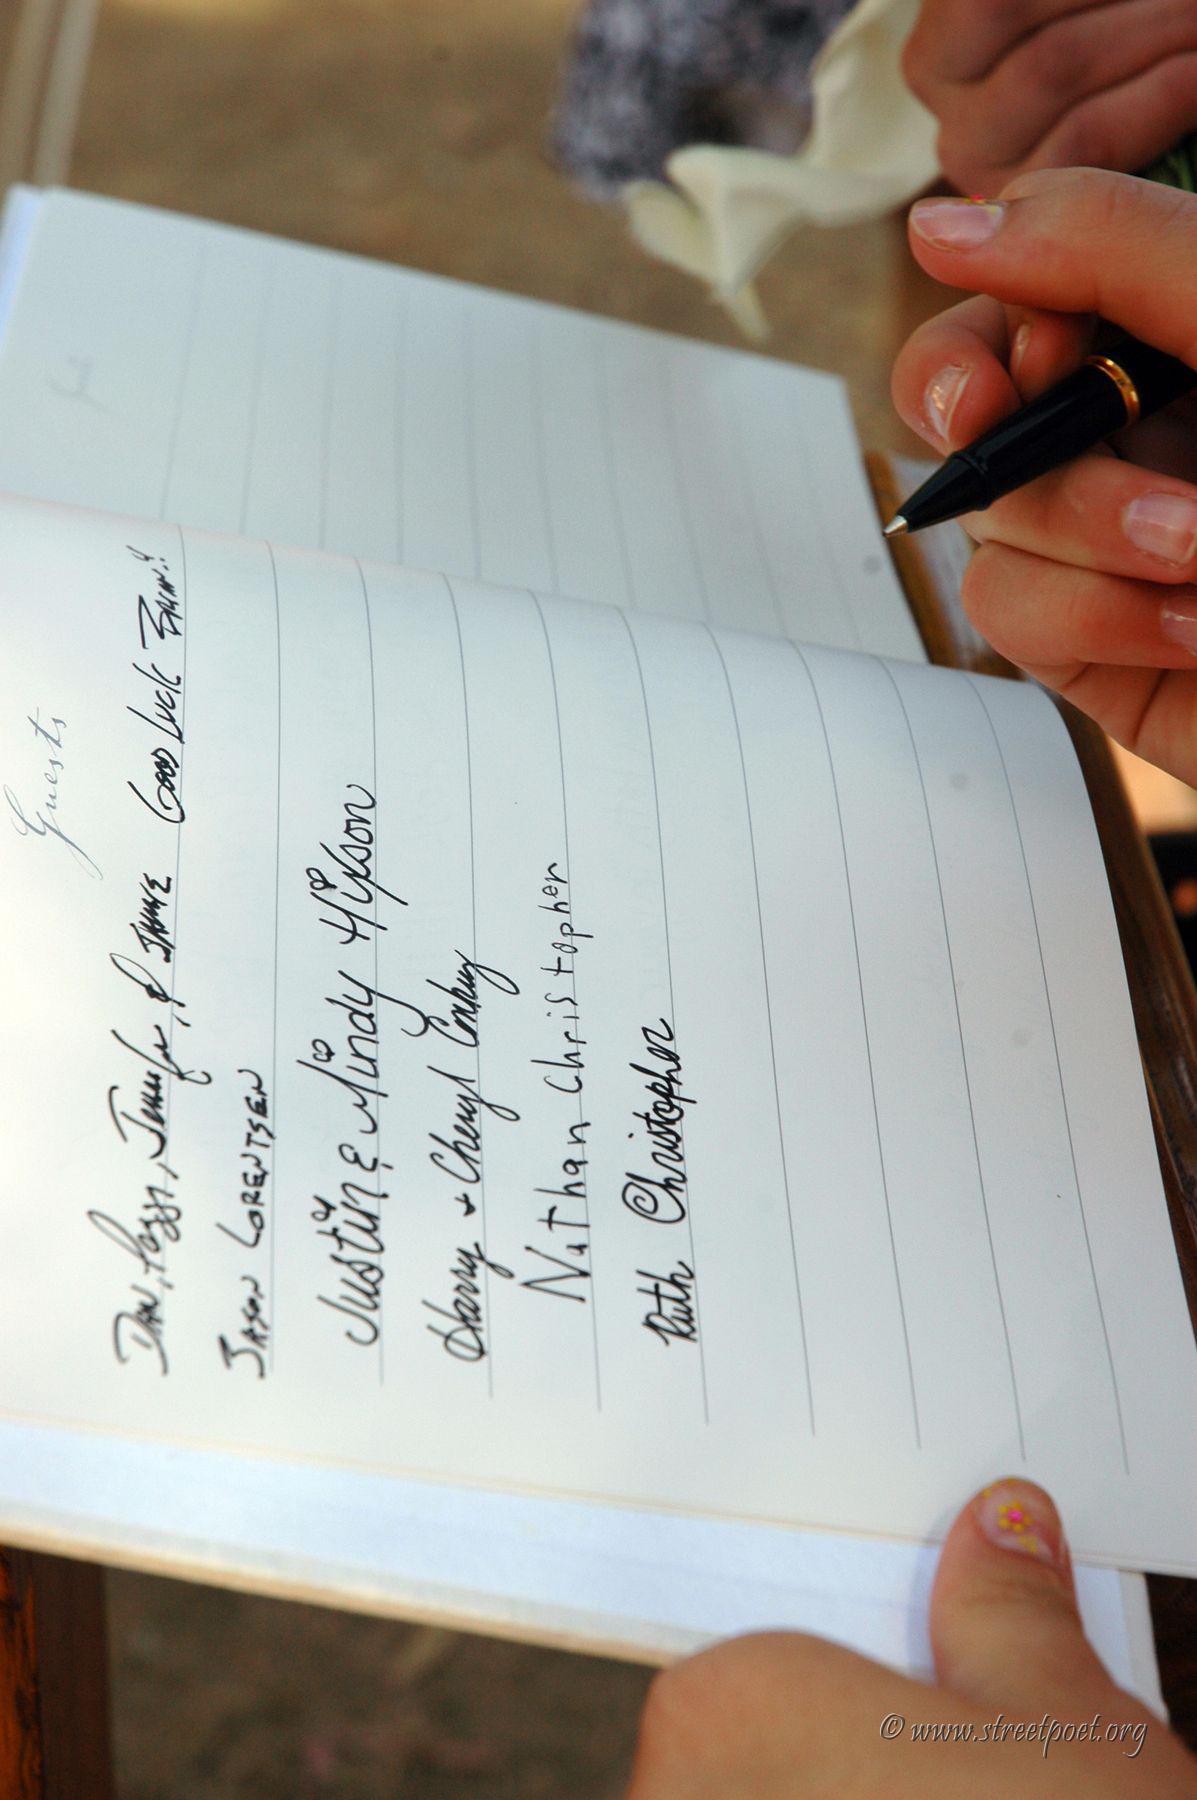 Guests
Dan, Peggy, Jennifer, & Jamie Good Luck
Jason Lorentsen
Justin & Mindy Hixson
Harry + Cheryl
Nathan Christopher
Ruth Christopher
© www.streetpoet.org